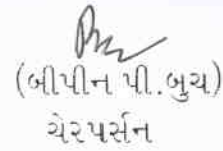 (બીપીન પી.બુચ)
ચેરપર્સન